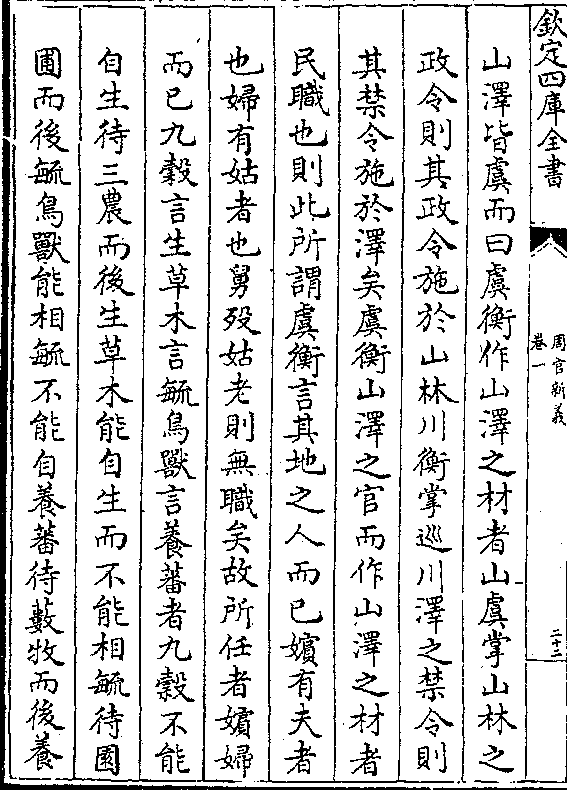 欽定四庫全書
周官新義
卷一
二十二
山澤皆虞而曰虞衡作山澤之材者山虞掌山林之
政令則其政令施於山林川衡掌巡川澤之禁令則
其禁令施於澤矣虞衡山澤之官而作山澤之材者
民職也則此所謂虞衡言其地之人而已嬪有夫者
也婦有姑者也舅歿姑老則無職矣故所任者嬪婦
而已九穀言生草木言毓鳥獸言養蕃者九穀不能
自生待三農而後生草木能自生而不能相毓待園
圃而後毓鳥獸能相毓不能自養蕃待藪牧而後養